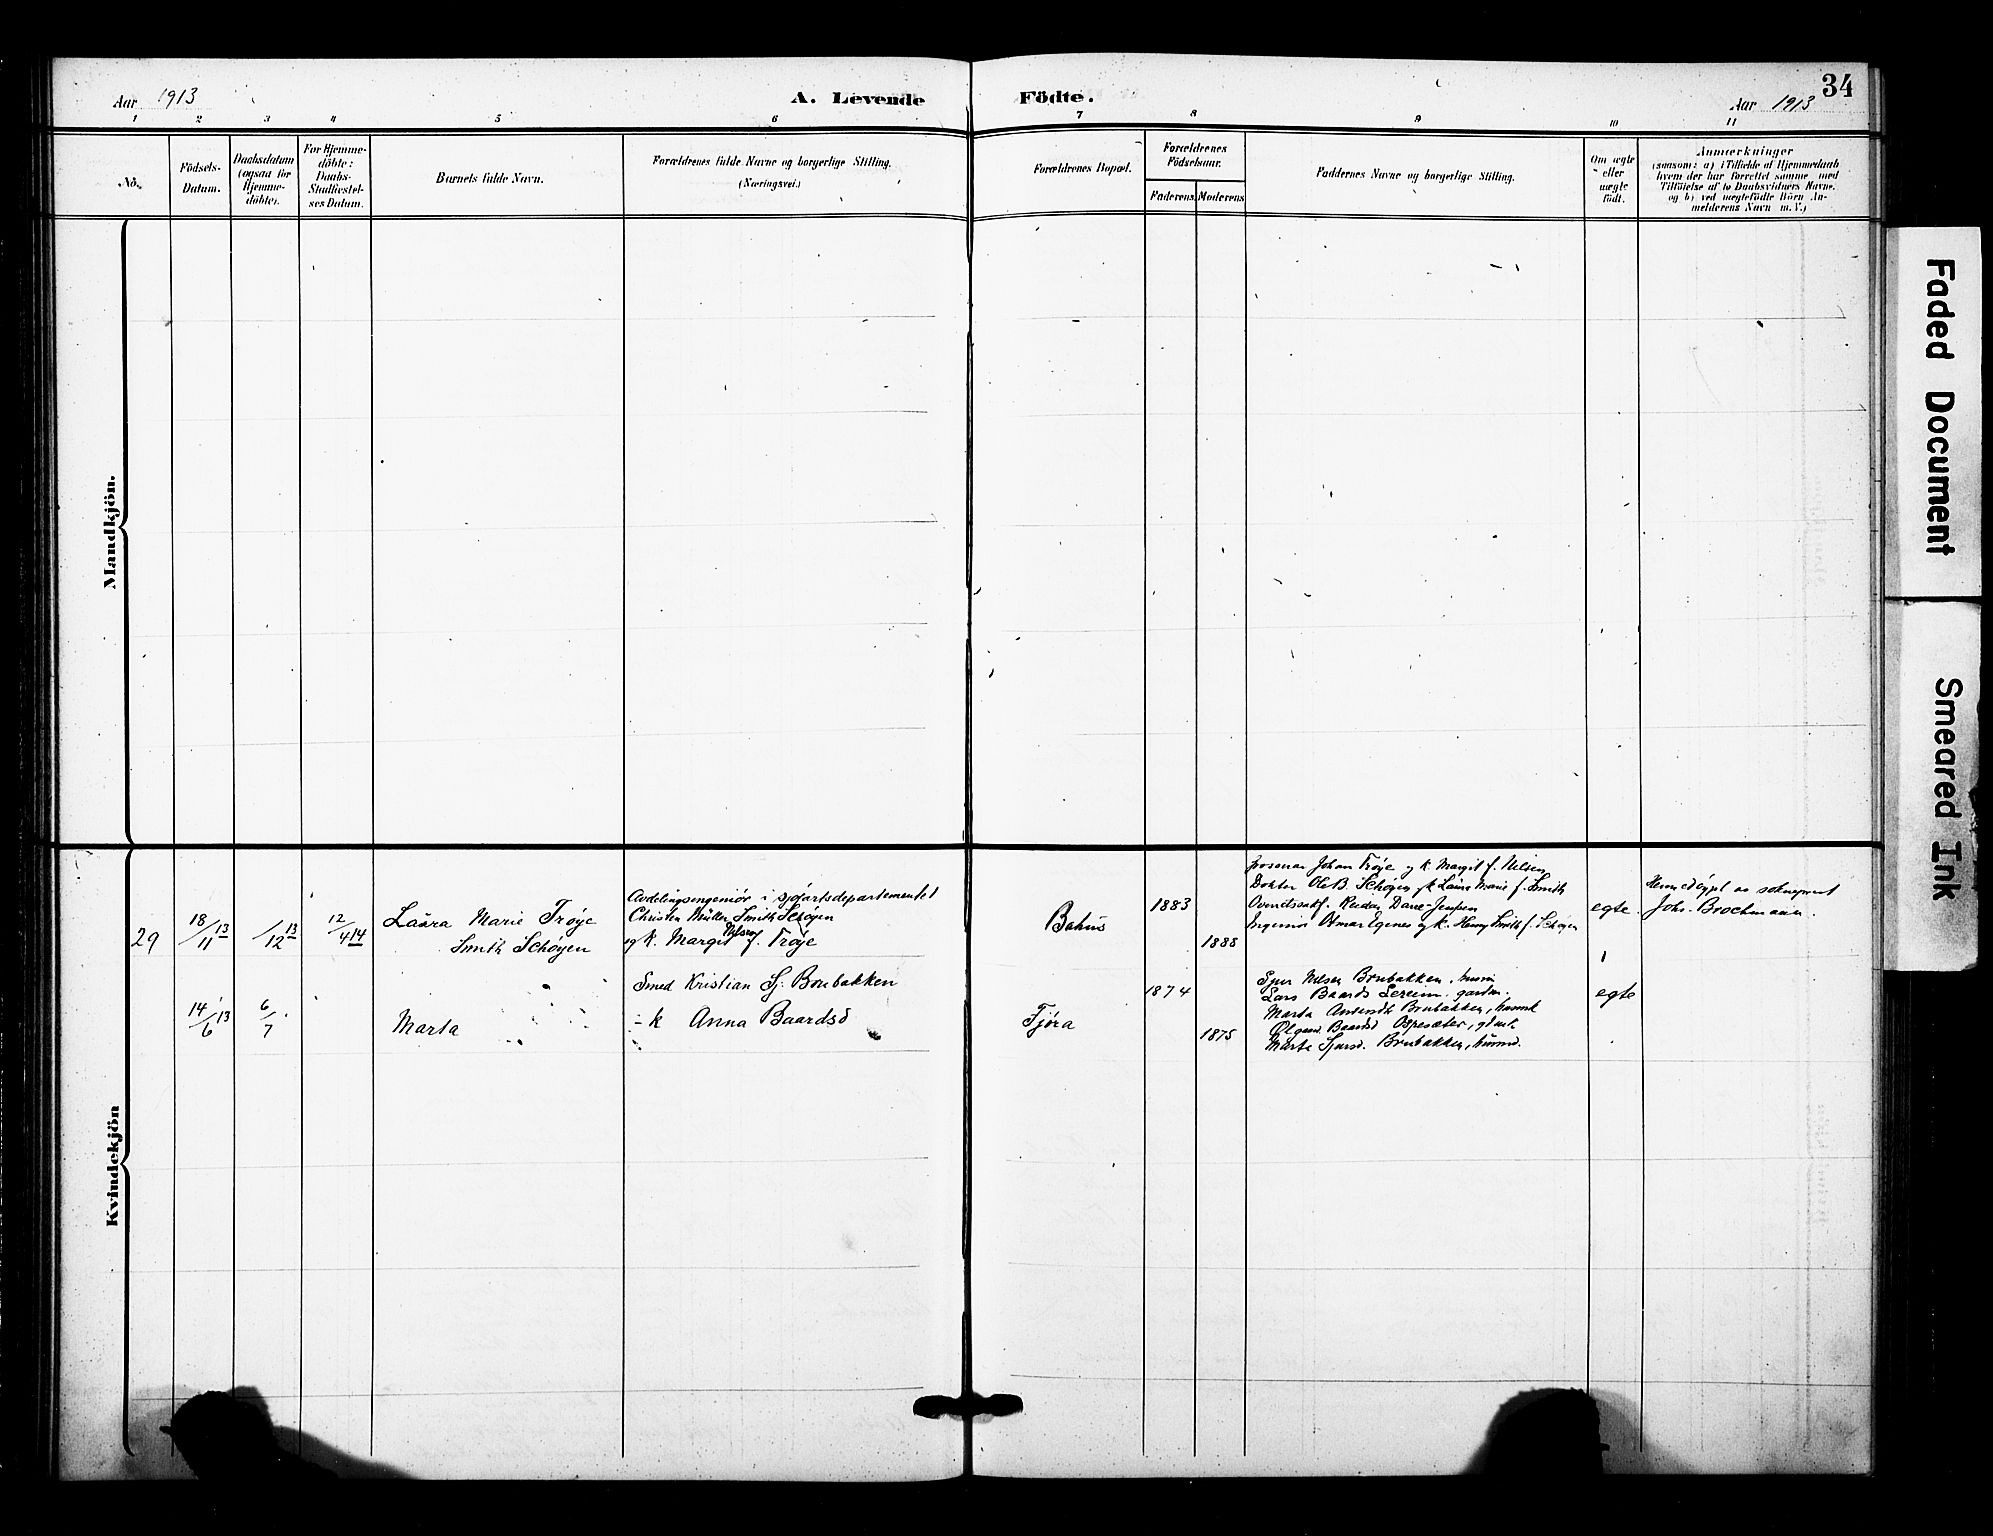 34
Aar 1913
A. Levende Födte.
Aar 1913
1 2 3 4 5 6 7 8 9 10 11
No.
Födsels-
Datum.
Daabsdatum
(ogsaa for
Hjemme-
döbte).
For Hjemme-
döbte:
Daabs-
Stadfæstel-
ses Datum.
Barnets fulde Navn.
Forældrenes fulde Navne og borgerlige Stilling.
(Næringsvei.)
Forældrenes Bopæl.
Forældrenes
Födselsaar.
Faderens Moderens
Faddernes Navne og borgerlige Stilling.
Om ægte
eller
uægte
födt.
Anmærkninger
(saasom: a) i Tilfælde af Hjemmedaab
hvem der har forrettet samme med
Tilföielse af to Daabsvidners Navne,
og b) ved uægtefödte Börn An-
melderens Navn m.V.)
Mandkjön.
Kvindekjön
29
18/11 13
/12 13
12/4 14
Laura Marie Trøye
Smith Schøyen
Avdelingsingeniør i sjøfartsdepartementet
Christen Müller Smith Schøyen
og k. Margit Nilsen f. Trøje
Bakus
1883
1888
Johan Trøje og k Margit f. Nilsen
Dokter Ole B. Schøyen og k Laura Marie f. Smith
Reidar Dave-Jensen
Ingeniør Otmar Egenes og k. Henny Smith f. Schøyen
egte
Hjemmedøpt av sokneprest
Johs. Brochmann.
14/6 13
6/7
Marta
Smed Kristian Sj. Brubakken
- k Anna Baardsd
Tjøra
1874
1875
Sjur Nilsen Brubakken, husm
Lars Baards Lereim, gardm.
Marta Brubakken, husmk
Baardsd Ospesæter,
Marta Sjursd. Brubakken, husmd.
egte
Faded Document
Smeared Ink